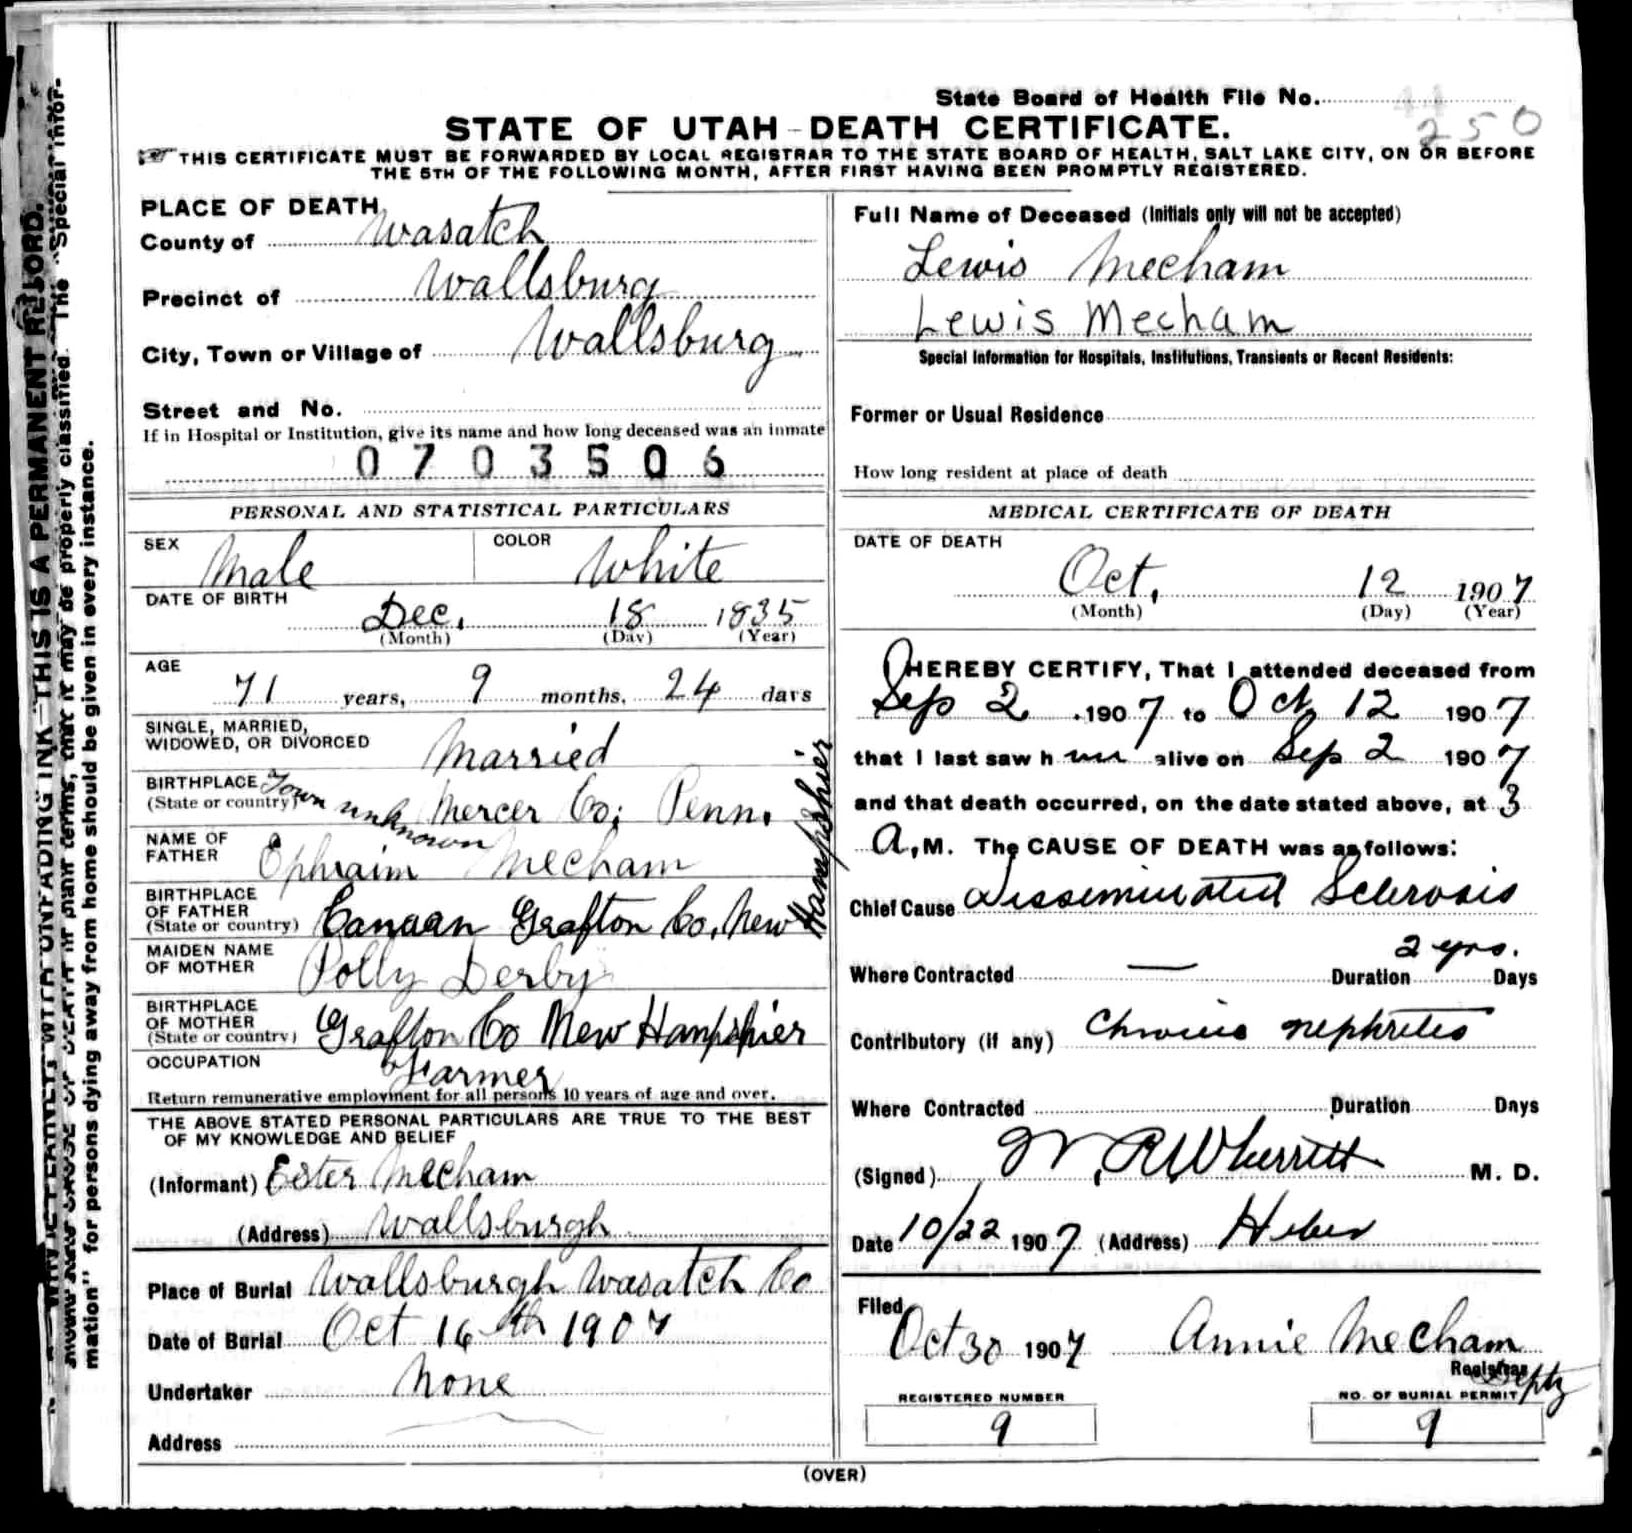 State Board of Health File No.
250
STATE OF UTAH - DEATH CERTIFICATE.
THIS CERTIFICATE MUST BE FORWARDED BY LOCAL REGISTRAR TO THE STATE BOARD OF HEALTH, SALT LAKE CITY, ON OR BEFORE
THE 5TH OF THE FOLLOWING MONTH, AFTER FIRST HAVING BEEN PROMPTLY REGISTERED.
PLACE OF DEATH
County of Wasatch
Precinct of Wallsburg
City, Town or Village of Wallsburg
Street and No.
If in Hospital or Institution, give its name and how long deceased was an inmate
0703506
PERSONAL AND STATISTICAL PARTICULARS
SEX Male COLOR White
DATE OF BIRTH
Dec. 18 1835
(Month) (Day) (Year)
AGE
71 years, 9 months, 24 days
SINGLE, MARRIED,
WIDOWED, OR DIVORCED Married
BIRTHPLACE Town unknown
(State or country) Mercer Co; Penn.
NAME OF
FATHER Ephraim Mecham
BIRTHPLACE
OF FATHER
(State or country) Canaan Grafton Co. New Hampshier
MAIDEN NAME
OF MOTHER Polly Derby
BIRTHPLACE
OF MOTHER
(State or country) Grafton Co New Hampshier
OCCUPATION Farmer
Return remunerative employment for all persons 10 years of age and over.
THE ABOVE STATED PERSONAL PARTICULARS ARE TRUE TO THE BEST
OF MY KNOWLEDGE AND BELIEF
(Informant) Ester Mecham
(Address) Wallsburgh
Place of Burial Wallsburgh Wasatch Co
Date of Burial Oct 16th 1907
Undertaker None
Address
Full Name of Deceased (Initials only will not be accepted)
Lewis Mecham
Lewis Mecham
Special Information for Hospitals, Institutions, Transients or Recent Residents:
Former or Usual Residence
How long resident at place of death
MEDICAL CERTIFICATE OF DEATH
DATE OF DEATH
Oct. 12 1907
(Month) (Day) (Year)
I HEREBY CERTIFY, That I attended deceased from
Sep 2 1907 to Oct 12 1907
that I last saw h im alive on Sep 2 1907
and that death occurred, on the date stated above, at 3
A.M. The CAUSE OF DEATH was as follows:
Chief Cause Disseminated Sclerosis
2 yrs.
Where Contracted — Duration Days
Contributory (if any) Chronic nephrites
Where Contracted Duration Days
(Signed) W. R Wherritt M. D.
Date 10/22 1907 (Address) Heber
Filed
Oct 30 1907 Annie Mecham
Registrar
Depty
REGISTERED NUMBER
9
NO. OF BURIAL PERMIT
9
(OVER)
THIS IS A PERMANENT RECORD.
mation" for persons dying away from home should be given in every instance.